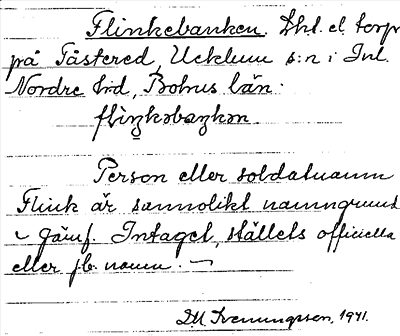 Flinkebacken. Lht. el. torp
på Tåstered, Ucklum s:n i Inl.
Nordre hd, Bohus län.
Person eller soldatnamn
Flink är sannolikt namngrund
jämf. Intaget, ställets officiella
eller jb. namn. —
1941.